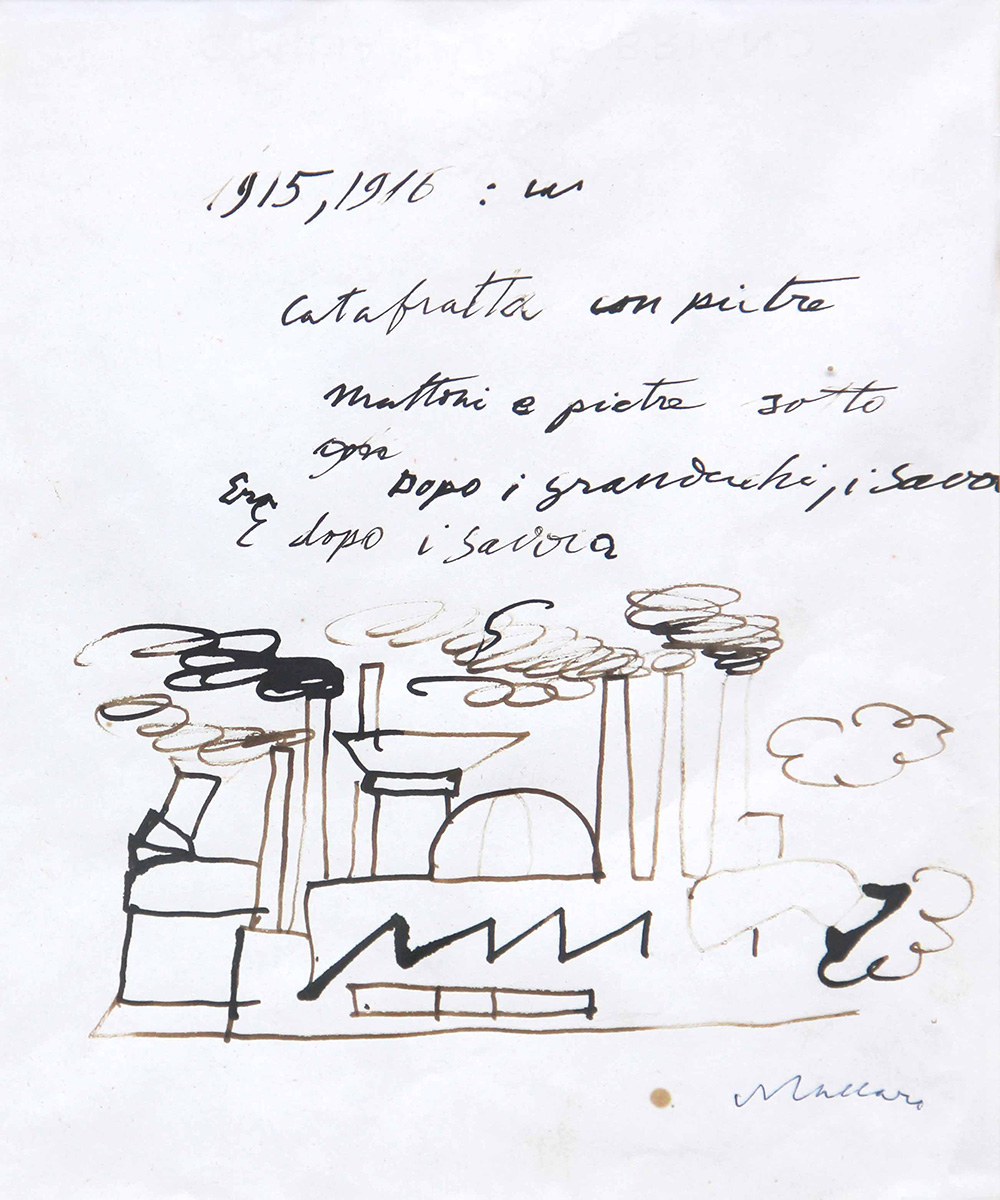 1915, 1916 :
catafratta con pietre
mattoni e pietre sotto
Dopo i granduchi, i Savo
Era
dopo i Savoia
Maccari